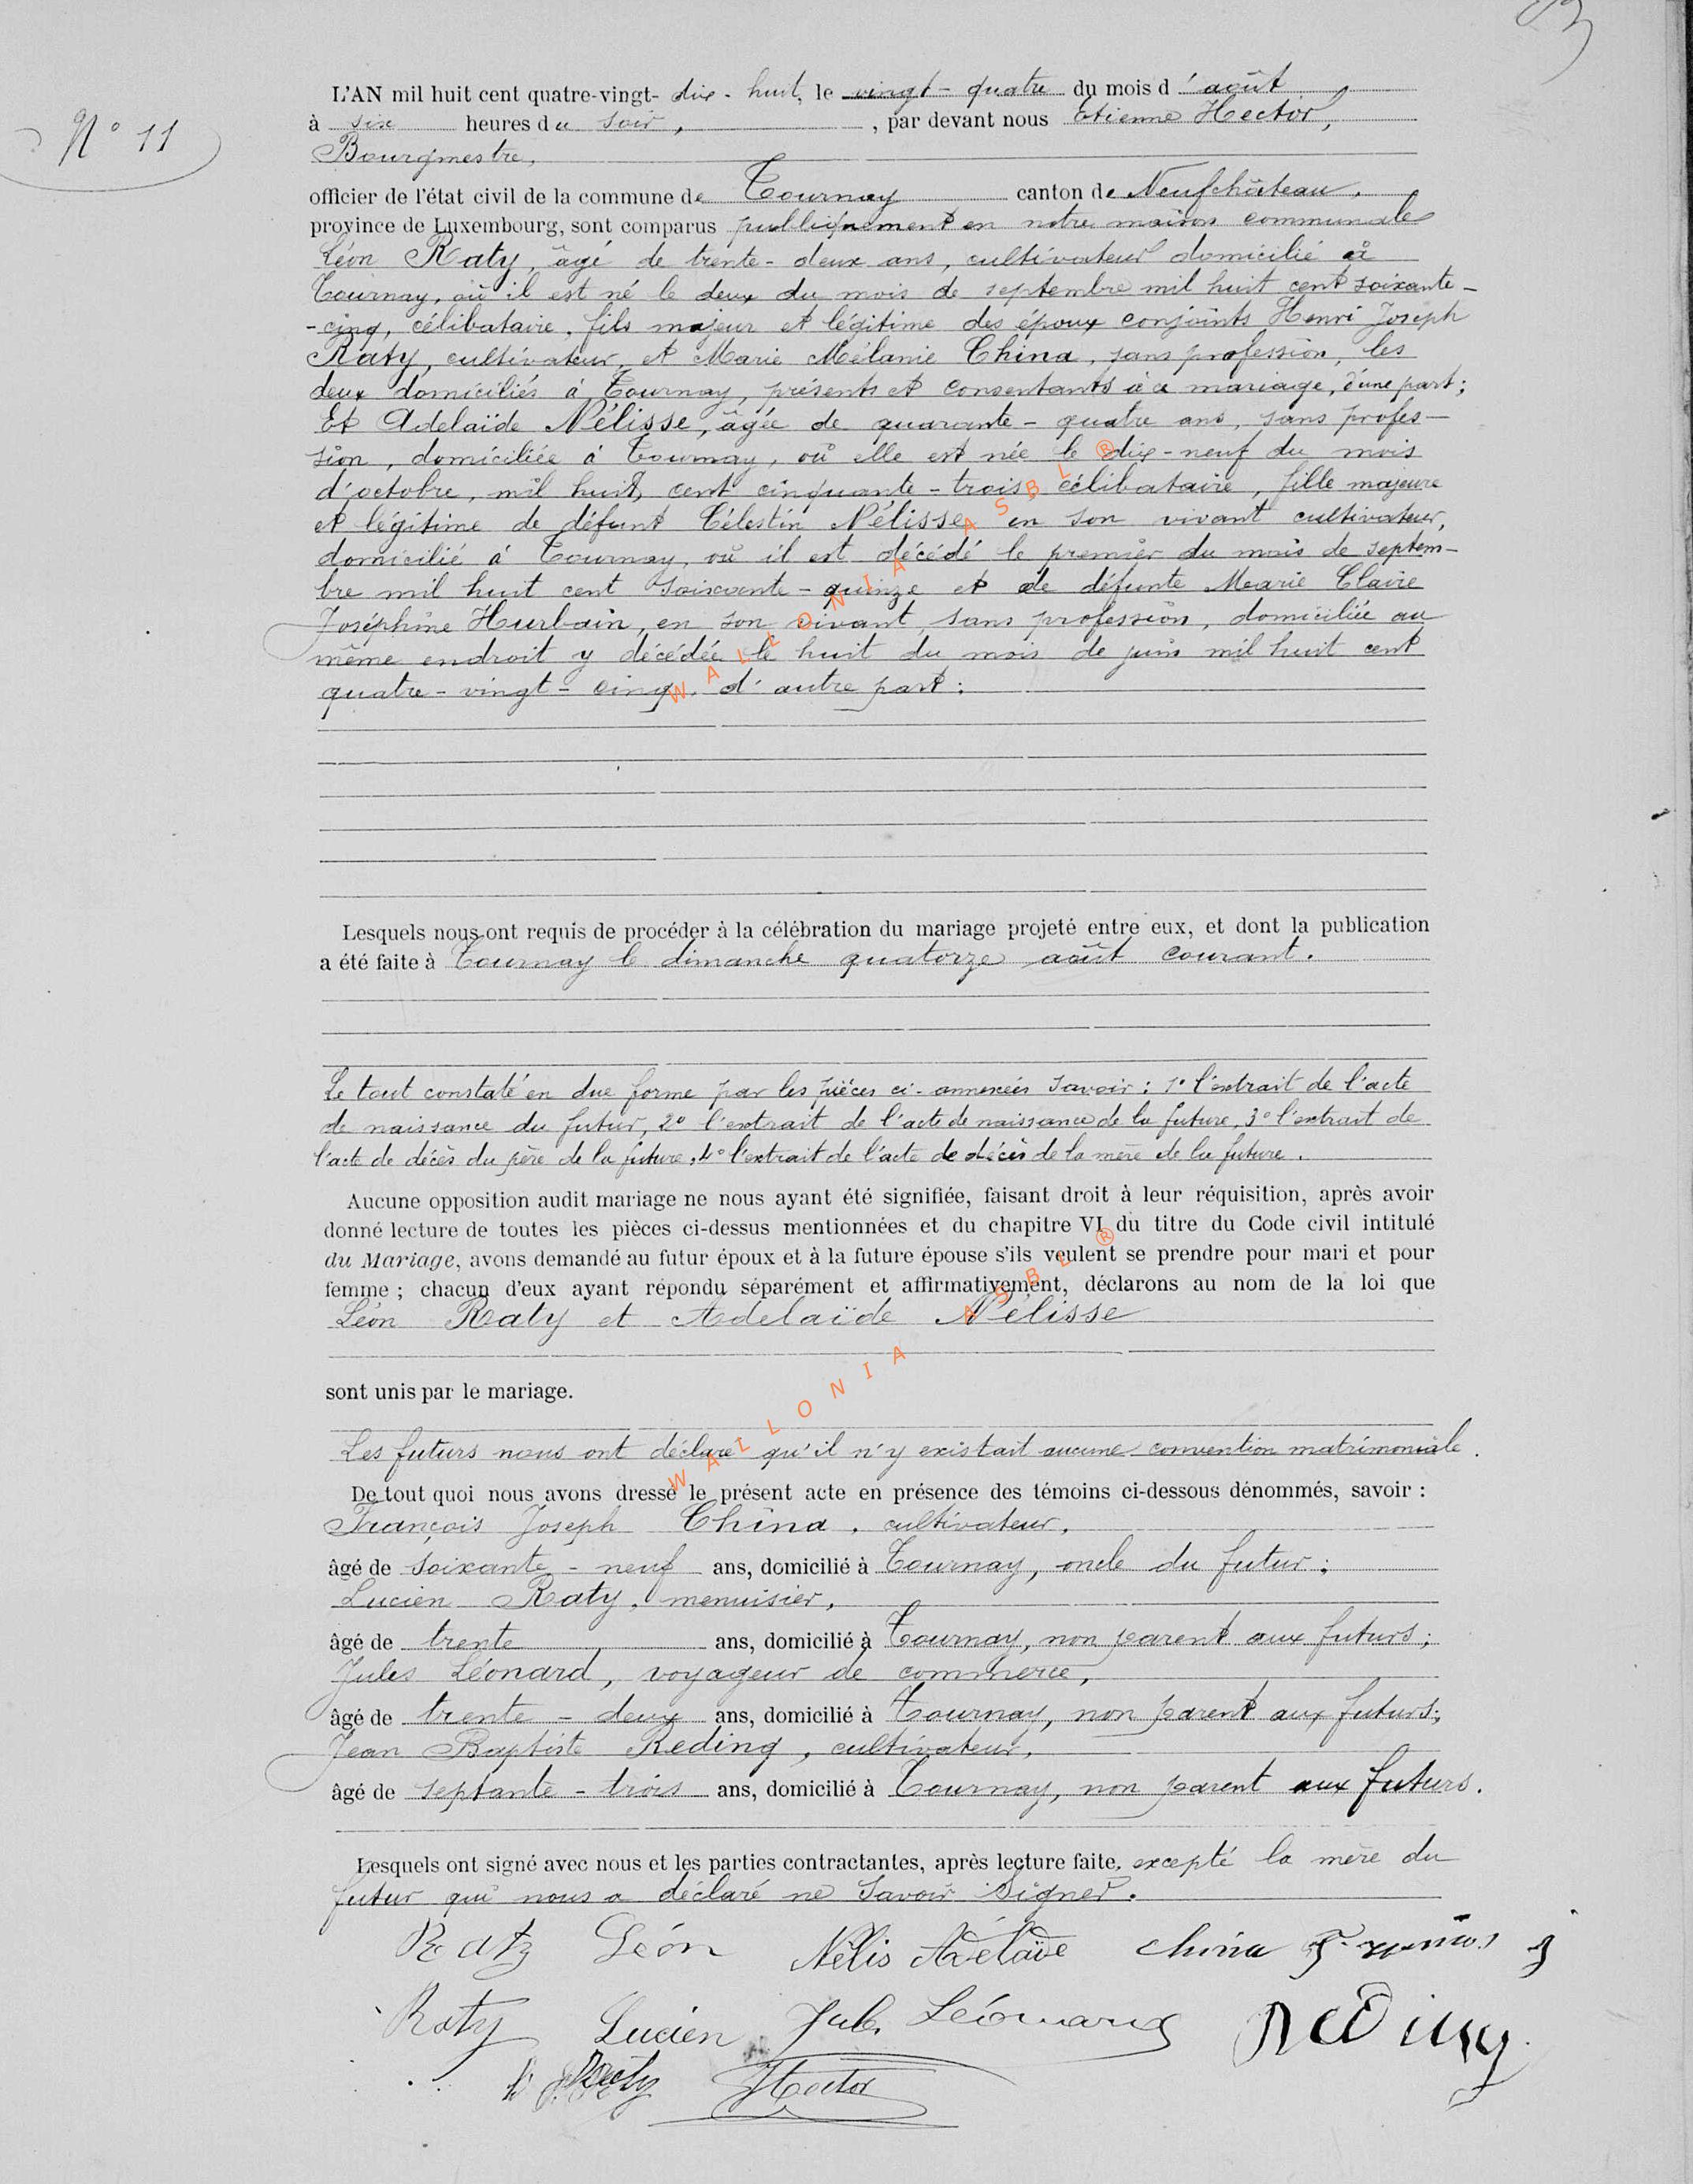 N° 11
L'AN mil huit cent quatre-vingt- dix-huit, le vingt-quatre du mois d'août
à six heures du soir, , par devant nous Etienne Hector,
Bourgmestre,
officier de l'état civil de la commune de Tournay canton de Neufchâteau,
province de Luxembourg, sont comparus publiquement en notre maison communale
Léon Raty, âgé de trente-deux ans, cultivateur domicilié à
Tournay, où il est né le deux du mois de septembre mil huit cent soixante-
-cinq, célibataire, fils majeur et légitime des époux conjoints Henri Joseph
Raty, cultivateur, et Marie Mélanie China, sans profession, les
deux domiciliés à Tournay, présents et consentants à ce mariage, d'une part;
Et Adelaïde Nélisse, âgée de quarante-quatre ans, sans profes-
sion, domiciliée à Tournay, où elle est née le dix-neuf du mois
d'octobre, mil huit cent cinquante-trois, célibataire, fille majeure
et légitime de défunt Célestin Nélisse, en son vivant cultivateur,
domicilié à Tournay, où il est décédé le premier du mois de septem-
bre mil huit cent soixante-quinze et de défunte Marie Claire
Joséphine Hurbain, en son vivant, sans profession, domiciliée au
même endroit y décédée le huit du mois de juin mil huit cent
quatre-vingt-cinq, d'autre part;
Lesquels nous ont requis de procéder à la célébration du mariage projeté entre eux, et dont la publication
a été faite à Tournay le dimanche quatorze août courant.
Le tout constaté en due forme par les pièces ci-annexées savoir: 1° l'extrait de l'acte
de naissance du futur, 2° l'extrait de l'acte de naissance de la future, 3° l'extrait de
l'acte de décès du père de la future, 4° l'extrait de l'acte de décès de la mère de la future.
Aucune opposition audit mariage ne nous ayant été signifiée, faisant droit à leur réquisition, après avoir
donné lecture de toutes les pièces ci-dessus mentionnées et du chapitre VI du titre du Code civil intitulé
du Mariage, avons demandé au futur époux et à la future épouse s'ils veulent se prendre pour mari et pour
femme ; chacun d'eux ayant répondu séparément et affirmativement, déclarons au nom de la loi que
Léon Raty et Adelaïde Nélisse
sont unis par le mariage.
Les futurs nous ont déclaré qu'il n'y existait aucune convention matrimoniale.
De tout quoi nous avons dressé le présent acte en présence des témoins ci-dessous dénommés, savoir :
François Joseph China, cultivateur,
âgé de soixante-neuf ans, domicilié à Tournay, oncle du futur;
Lucien Raty, menuisier,
âgé de trente ans, domicilié à Tournay, non parent aux futurs;
Jules Léonard, voyageur de commerce,
âgé de trente-deux ans, domicilié à Tournay, non parent aux futurs;
Jean Baptiste Reding, cultivateur,
âgé de septante-trois ans, domicilié à Tournay, non parent aux futurs.
Lesquels ont signé avec nous et les parties contractantes, après lecture faite, excepté la mère du
futur qui nous a déclaré ne savoir signer.
Raty Léon Nélis Adelaïde China François J
Raty Lucien Jules Léonard Reding
H J Raty Hector
WALLONIA ASBL ®
WALLONIA ASBL ®